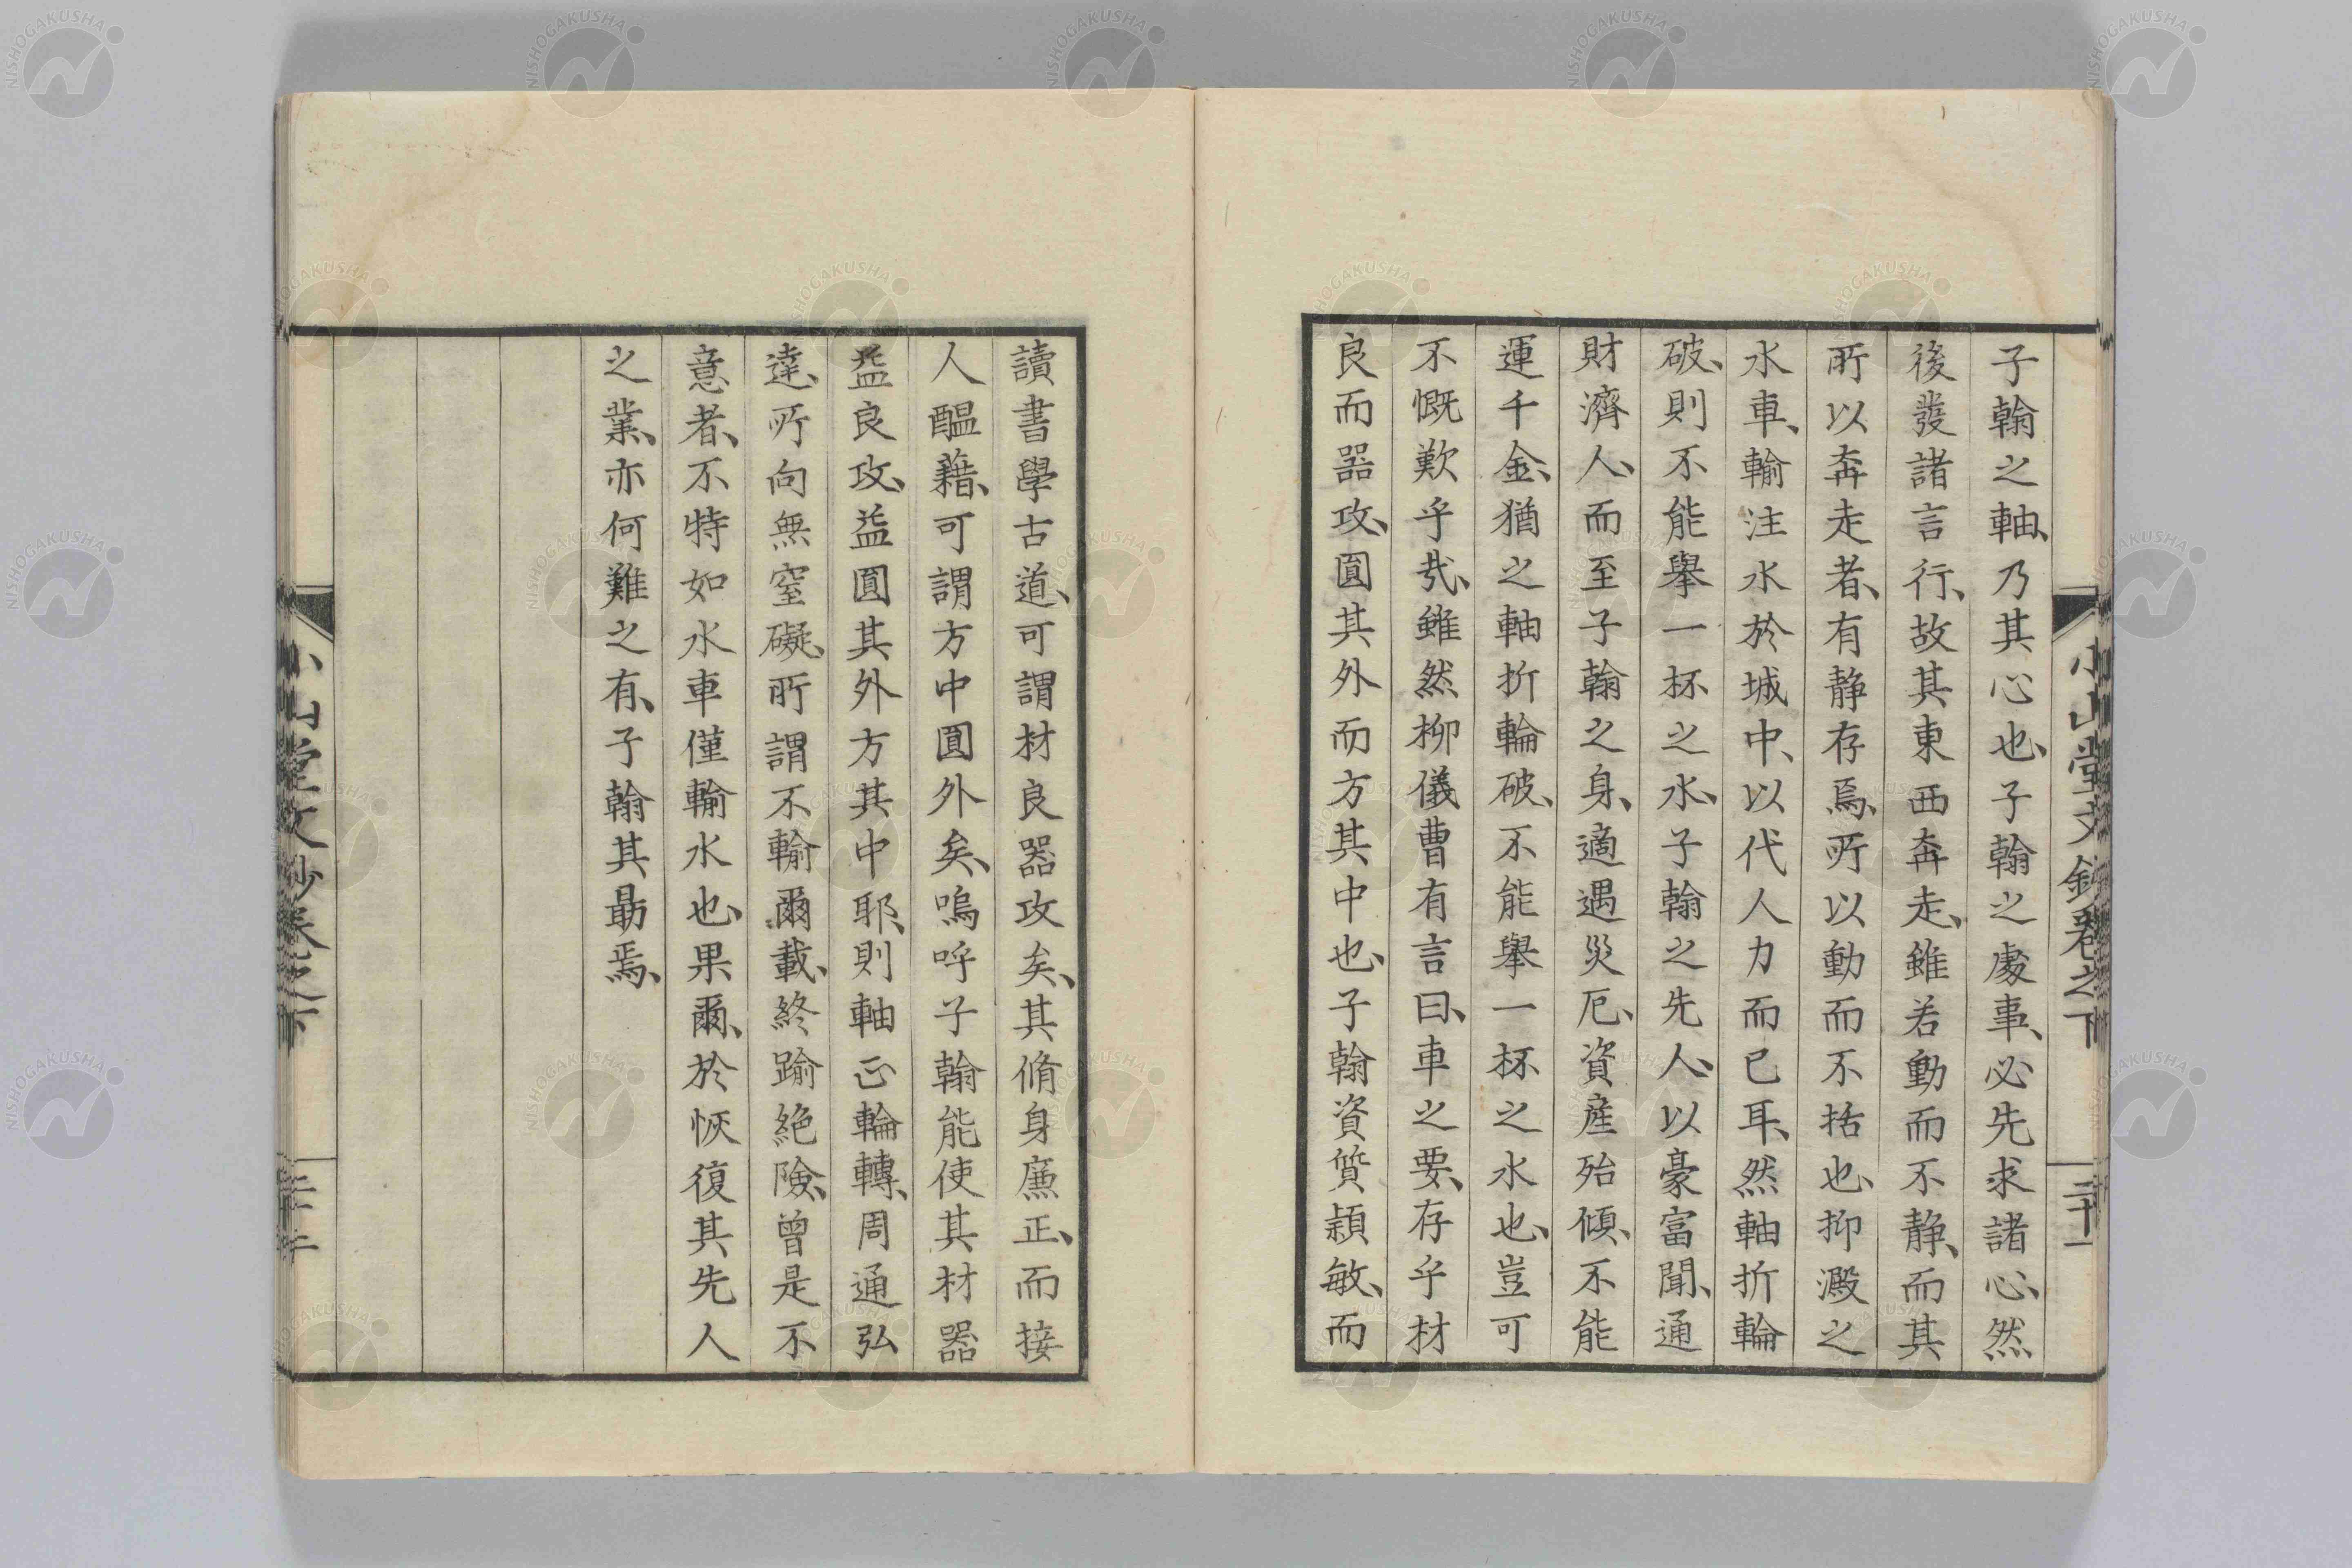 小山堂文鈔卷之下
三十一
子翰之軸、乃其心也、子翰之處事、必先求諸心、然
後發諸言行、故其東西奔走、雖若動而不静、而其
所以奔走者、有静存焉、所以動而不括也、抑澱之
水車、輸注水於城中、以代人力而已耳、然軸折輪
破、則不能擧一杯之水、子翰之先人、以豪富聞、通
財濟人、而至子翰之身、適遇災厄、資産殆傾、不能
運千金、猶之軸折輪破、不能擧一杯之水也、豈可
不慨歎乎哉、雖然柳儀曹有言曰、車之要、存乎材
良而器攻、圓其外而方其中也、子翰資質穎敏、而
讀書學古道、可謂材良器攻矣、其脩身廉正、而接
人醞藉、可謂方中圓外矣、嗚呼子翰能使其材器
益良攻、益圓其外方其中耶、則軸正輪轉、周通弘
達、所向無窒礙、所謂不輸爾載、終踰絶險、曾是不
意者、不特如水車僅輸水也、果爾、於恢復其先人
之業、亦何難之有、子翰其勗焉、
小山堂文鈔卷之下
NISHOGAKUSHA